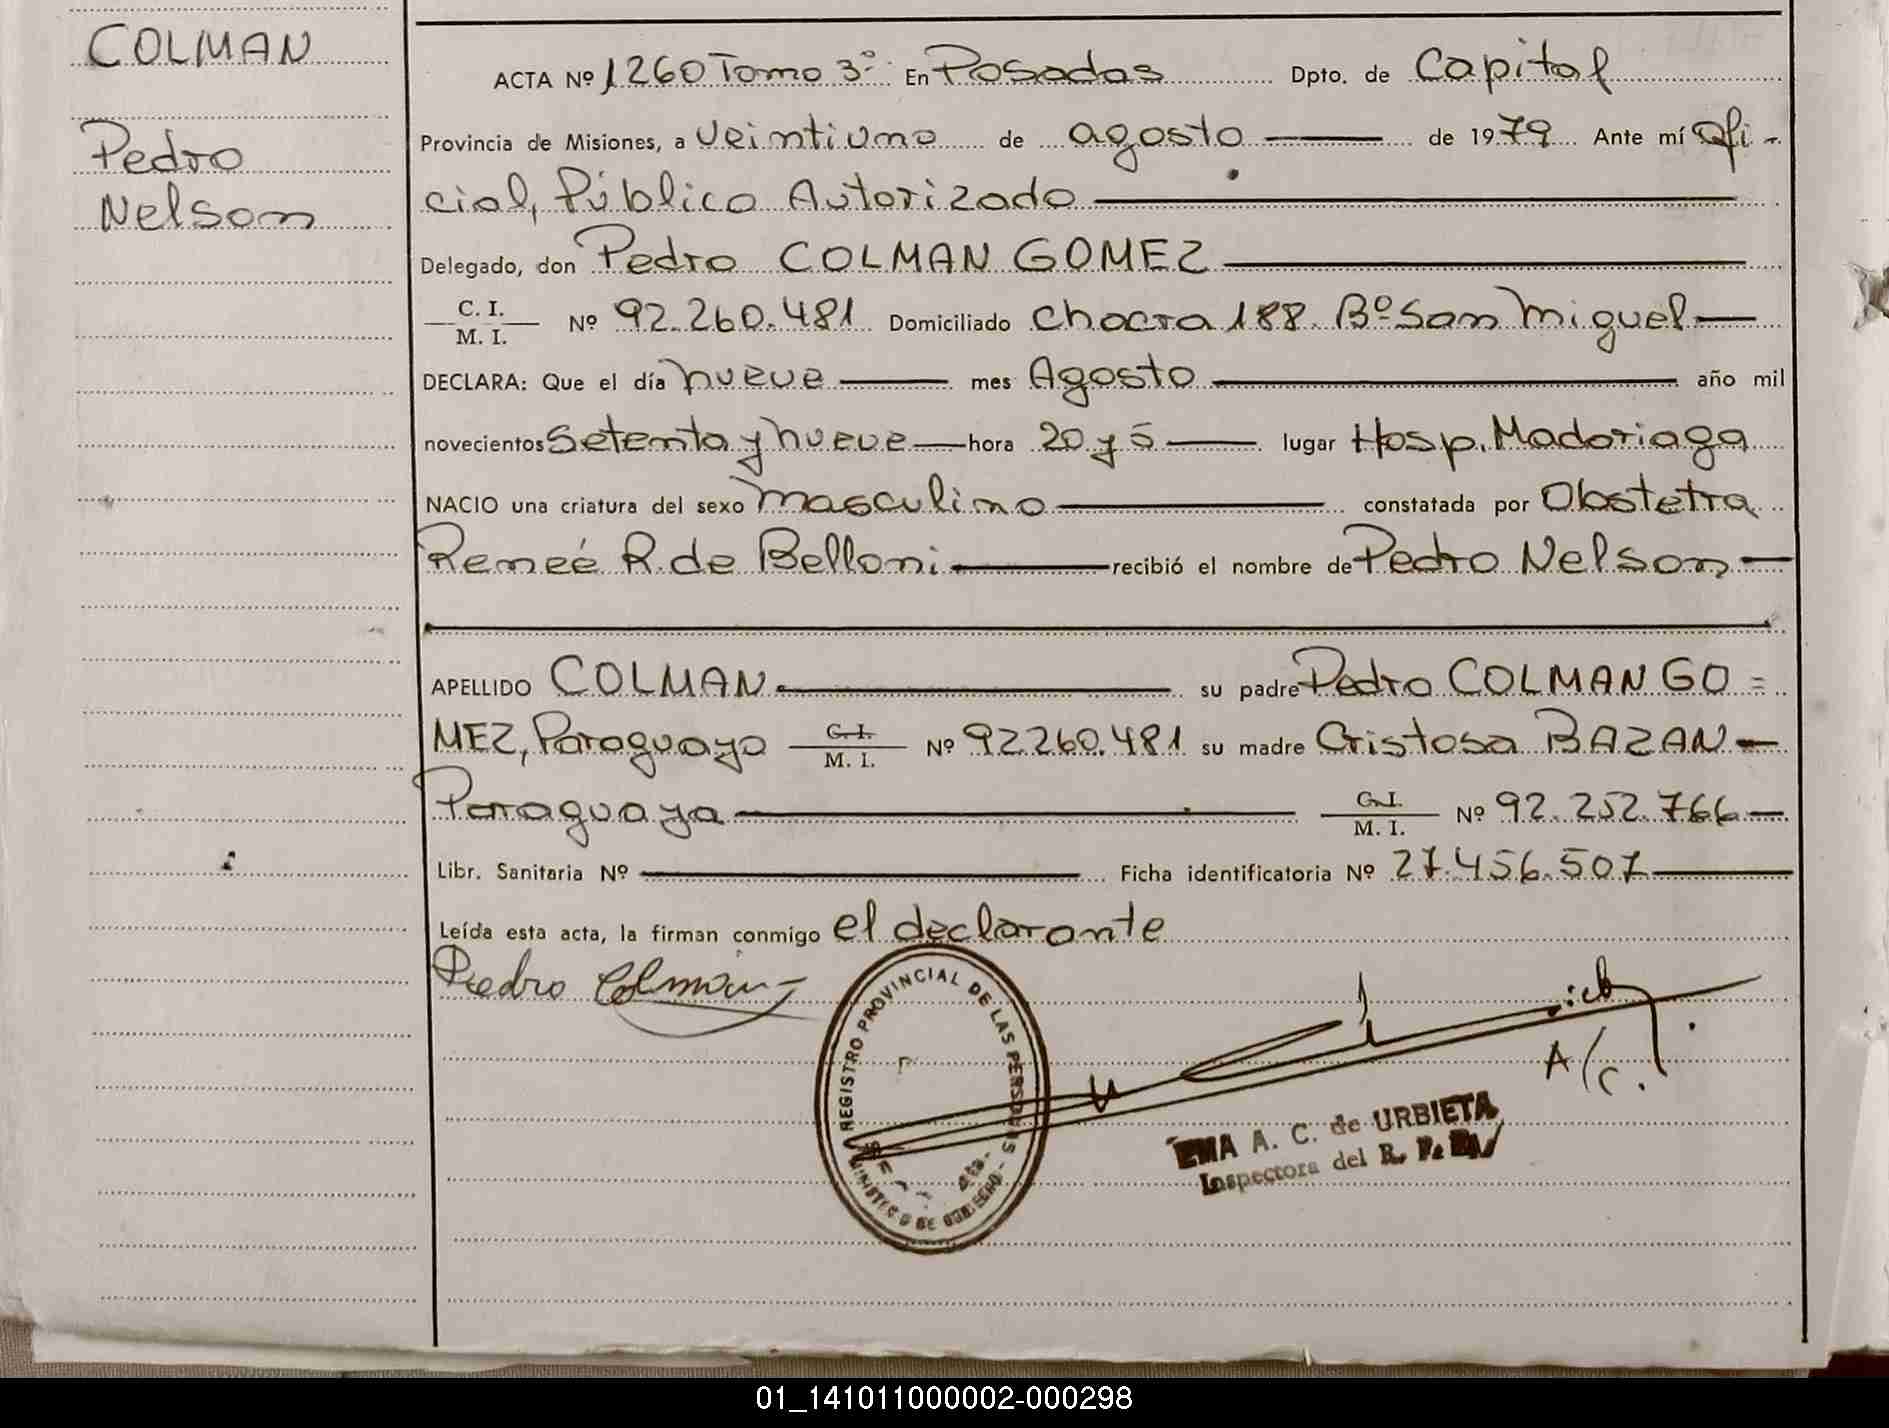 COLMAN
Pedro
Nelson
ACTA Nº 1260 Tomo 3º En Posadas Dpto. de Capital
Provincia de Misiones, a veintiuno de agosto de 1979 Ante mí Ofi-
cial, Público Autorizado
Delegado, don Pedro COLMAN GOMEZ
C. I.
M. I. Nº 92.260.481 Domiciliado Chacra 188. Bº San Miguel
DECLARA: Que el día nueve mes Agosto año mil
novecientos Setenta y nueve hora 20 y 5 lugar Hosp. Madariaga
NACIO una criatura del sexo masculino constatada por Obstetra
Reneé R. de Belloni recibió el nombre de Pedro Nelson
APELLIDO COLMAN su padre Pedro COLMAN GO=
MEZ, Paraguayo C. I. M. I. Nº 92.260.481 su madre Cristosa BAZAN
Paraguaya C. I. M. I. Nº 92.252.766
Libr. Sanitaria Nº Ficha identificatoria Nº 27.456.507
Leída esta acta, la firman conmigo el declarante
Pedro Colman
REGISTRO PROVINCIAL DE LAS PERSONAS
MINISTERIO DE GOBIERNO
A/C.
EMA A. C. de URBIETA
Inspectora del R. P.
01_141011000002-000298